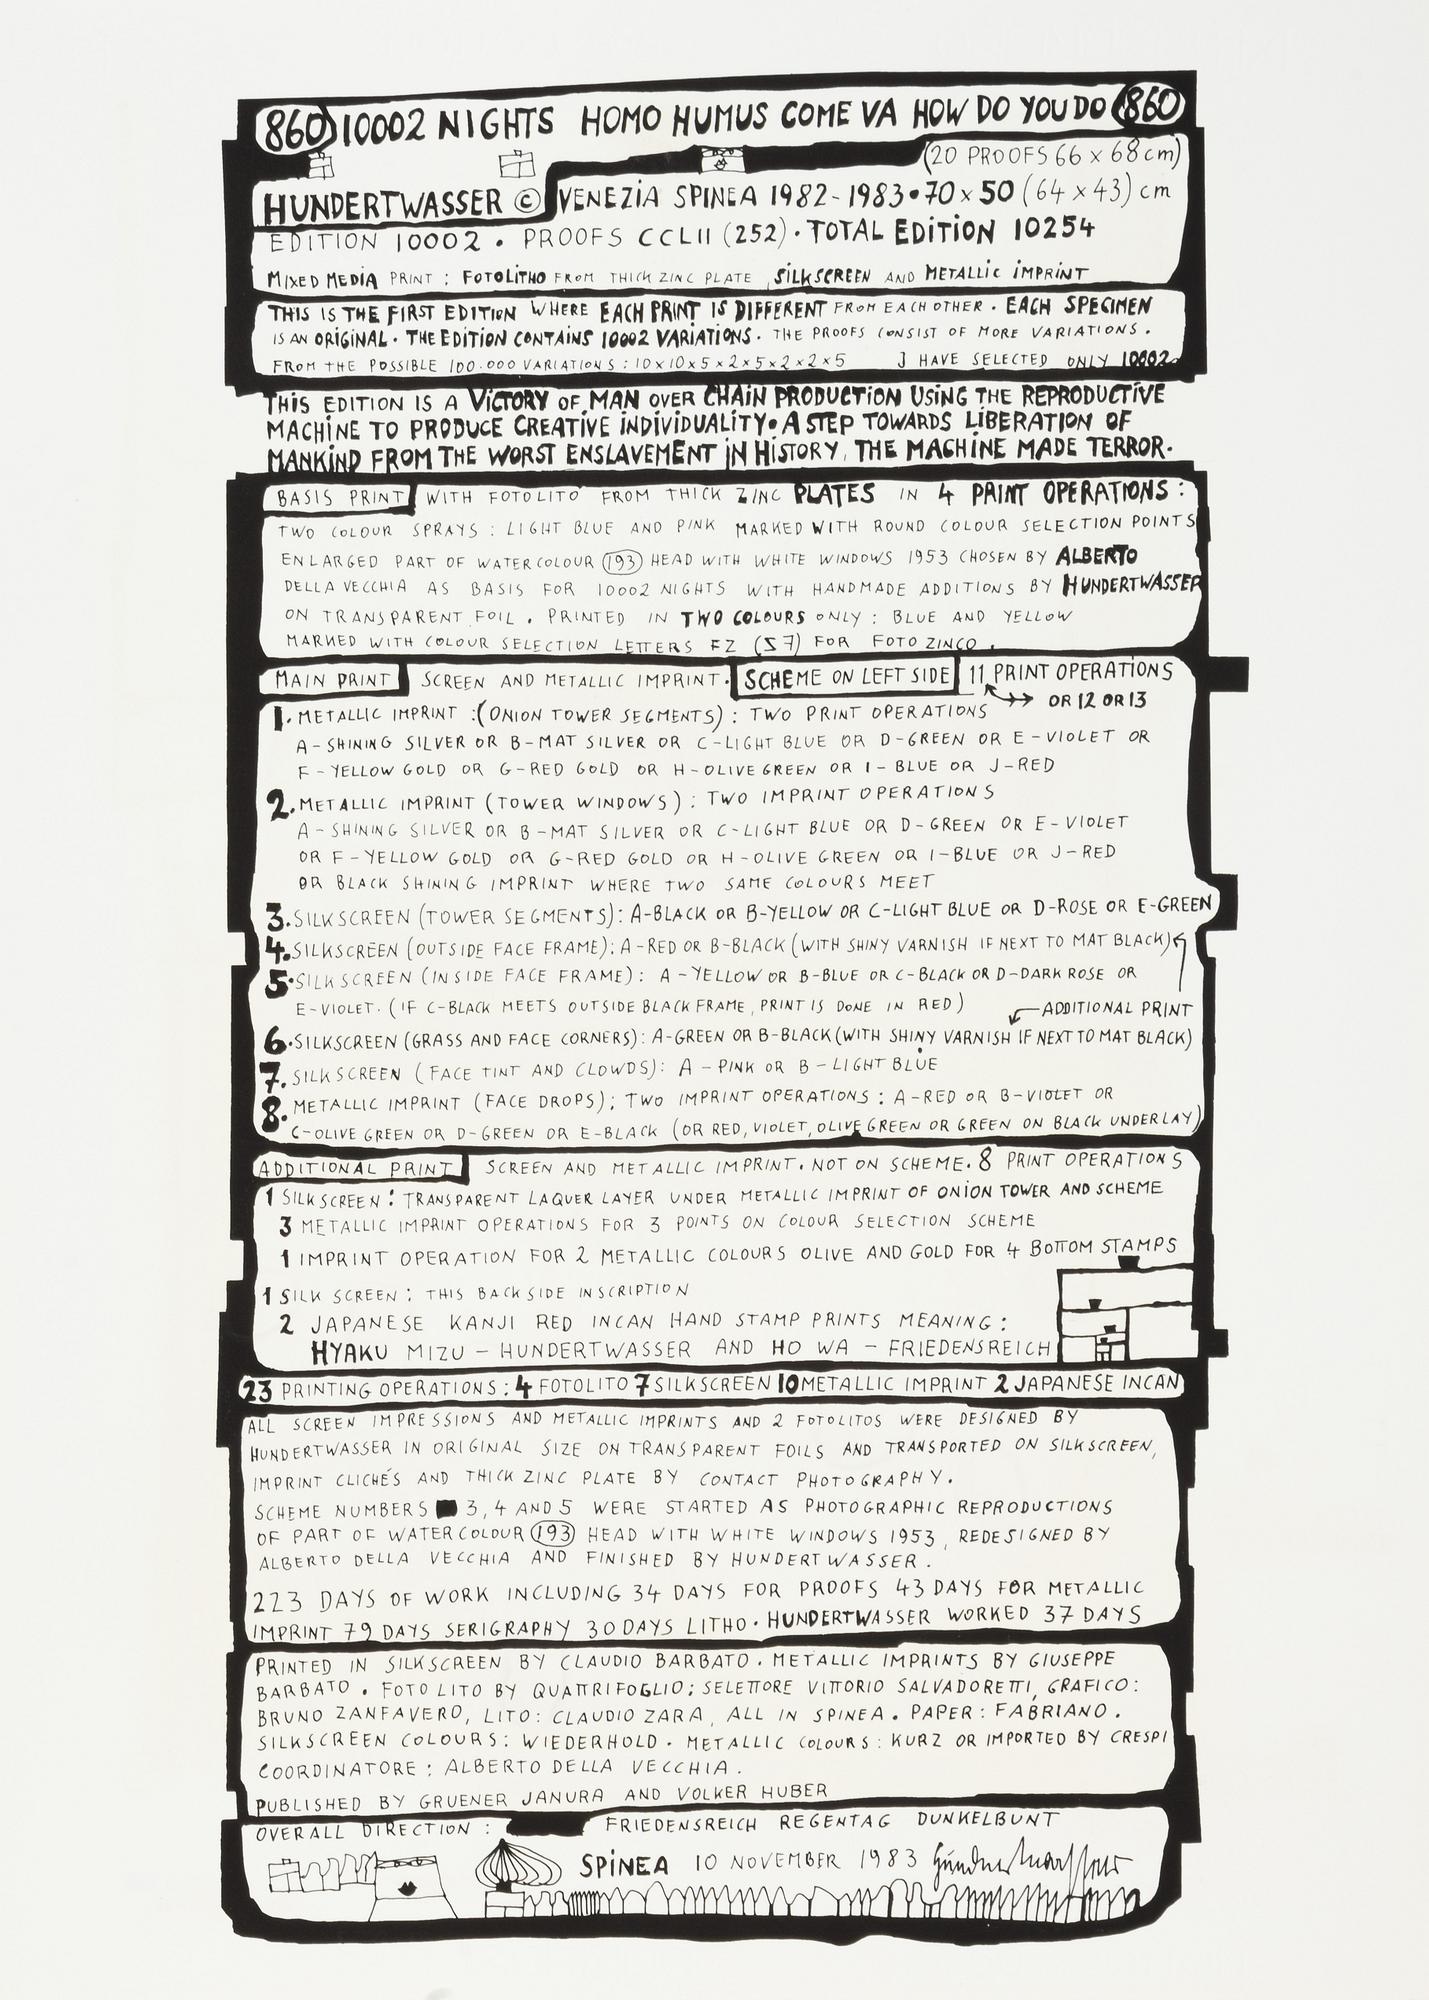 860 10002 NIGHTS HOMO HUMUS COME VA HOW DO YOU DO 860
(20 PROOFS 66 x 68 cm)
HUNDERTWASSER © VENEZIA SPINEA 1982-1983 • 70 x 50 (64 x 43) cm
EDITION 10002 • PROOFS CCLII (252) • TOTAL EDITION 10254
MIXED MEDIA PRINT : FOTOLITHO FROM THICK ZINC PLATE, SILKSCREEN AND METALLIC IMPRINT
THIS IS THE FIRST EDITION WHERE EACH PRINT IS DIFFERENT FROM EACH OTHER • EACH SPECIMEN
IS AN ORIGINAL • THE EDITION CONTAINS 10002 VARIATIONS. THE PROOFS CONSIST OF MORE VARIATIONS.
FROM THE POSSIBLE 100.000 VARIATIONS : 10x10x5x2x5x2x2x5 J HAVE SELECTED ONLY 10002.
THIS EDITION IS A VICTORY OF MAN OVER CHAIN PRODUCTION USING THE REPRODUCTIVE
MACHINE TO PRODUCE CREATIVE INDIVIDUALITY • A STEP TOWARDS LIBERATION OF
MANKIND FROM THE WORST ENSLAVEMENT IN HISTORY, THE MACHINE MADE TERROR.
BASIS PRINT WITH FOTOLITO FROM THICK ZINC PLATES IN 4 PRINT OPERATIONS :
TWO COLOUR SPRAYS : LIGHT BLUE AND PINK MARKED WITH ROUND COLOUR SELECTION POINTS
ENLARGED PART OF WATERCOLOUR (193) HEAD WITH WHITE WINDOWS 1953 CHOSEN BY ALBERTO
DELLA VECCHIA AS BASIS FOR 10002 NIGHTS WITH HANDMADE ADDITIONS BY HUNDERTWASSER
ON TRANSPARENT FOIL. PRINTED IN TWO COLOURS ONLY : BLUE AND YELLOW
MARKED WITH COLOUR SELECTION LETTERS FZ (S7) FOR FOTO ZINCO.
MAIN PRINT SCREEN AND METALLIC IMPRINT. SCHEME ON LEFT SIDE 11 PRINT OPERATIONS
OR 12 OR 13
1. METALLIC IMPRINT : (ONION TOWER SEGMENTS) : TWO PRINT OPERATIONS
A-SHINING SILVER OR B-MAT SILVER OR C-LIGHT BLUE OR D-GREEN OR E-VIOLET OR
F-YELLOW GOLD OR G-RED GOLD OR H-OLIVE GREEN OR I-BLUE OR J-RED
2. METALLIC IMPRINT (TOWER WINDOWS) : TWO IMPRINT OPERATIONS
A-SHINING SILVER OR B-MAT SILVER OR C-LIGHT BLUE OR D-GREEN OR E-VIOLET
OR F-YELLOW GOLD OR G-RED GOLD OR H-OLIVE GREEN OR I-BLUE OR J-RED
OR BLACK SHINING IMPRINT WHERE TWO SAME COLOURS MEET
3. SILKSCREEN (TOWER SEGMENTS) : A-BLACK OR B-YELLOW OR C-LIGHT BLUE OR D-ROSE OR E-GREEN
4. SILKSCREEN (OUTSIDE FACE FRAME) : A-RED OR B-BLACK (WITH SHINY VARNISH IF NEXT TO MAT BLACK)
5. SILKSCREEN (INSIDE FACE FRAME) : A-YELLOW OR B-BLUE OR C-BLACK OR D-DARK ROSE OR
E-VIOLET. (IF C-BLACK MEETS OUTSIDE BLACK FRAME, PRINT IS DONE IN RED)
ADDITIONAL PRINT
6. SILKSCREEN (GRASS AND FACE CORNERS) : A-GREEN OR B-BLACK (WITH SHINY VARNISH IF NEXT TO MAT BLACK)
7. SILKSCREEN (FACE TINT AND CLOWDS) : A-PINK OR B-LIGHT BLUE
8. METALLIC IMPRINT (FACE DROPS) ; TWO IMPRINT OPERATIONS : A-RED OR B-VIOLET OR
C-OLIVE GREEN OR D-GREEN OR E-BLACK (OR RED, VIOLET, OLIVE GREEN OR GREEN ON BLACK UNDERLAY)
ADDITIONAL PRINT SCREEN AND METALLIC IMPRINT. NOT ON SCHEME. 8 PRINT OPERATIONS
1 SILKSCREEN : TRANSPARENT LAQUER LAYER UNDER METALLIC IMPRINT OF ONION TOWER AND SCHEME
3 METALLIC IMPRINT OPERATIONS FOR 3 POINTS ON COLOUR SELECTION SCHEME
1 IMPRINT OPERATION FOR 2 METALLIC COLOURS OLIVE AND GOLD FOR 4 BOTTOM STAMPS
1 SILK SCREEN : THIS BACKSIDE INSCRIPTION
2 JAPANESE KANJI RED INCAN HAND STAMP PRINTS MEANING :
HYAKU MIZU - HUNDERTWASSER AND HO WA - FRIEDENSREICH
23 PRINTING OPERATIONS : 4 FOTOLITO 7 SILKSCREEN 10 METALLIC IMPRINT 2 JAPANESE INCAN
ALL SCREEN IMPRESSIONS AND METALLIC IMPRINTS AND 2 FOTOLITOS WERE DESIGNED BY
HUNDERTWASSER IN ORIGINAL SIZE ON TRANSPARENT FOILS AND TRANSPORTED ON SILKSCREEN,
IMPRINT CLICHÉS AND THICK ZINC PLATE BY CONTACT PHOTOGRAPHY.
SCHEME NUMBERS 3, 4 AND 5 WERE STARTED AS PHOTOGRAPHIC REPRODUCTIONS
OF PART OF WATERCOLOUR (193) HEAD WITH WHITE WINDOWS 1953, REDESIGNED BY
ALBERTO DELLA VECCHIA AND FINISHED BY HUNDERTWASSER.
223 DAYS OF WORK INCLUDING 34 DAYS FOR PROOFS 43 DAYS FOR METALLIC
IMPRINT 79 DAYS SERIGRAPHY 30 DAYS LITHO • HUNDERTWASSER WORKED 37 DAYS
PRINTED IN SILKSCREEN BY CLAUDIO BARBATO. METALLIC IMPRINTS BY GIUSEPPE
BARBATO. FOTOLITO BY QUATTRIFOGLIO; SELETTORE VITTORIO SALVADORETTI, GRAFICO :
BRUNO ZANFAVERO, LITO : CLAUDIO ZARA, ALL IN SPINEA. PAPER : FABRIANO.
SILKSCREEN COLOURS : WIEDERHOLD. METALLIC COLOURS : KURZ OR IMPORTED BY CRESPI
COORDINATORE : ALBERTO DELLA VECCHIA.
PUBLISHED BY GRUENER JANURA AND VOLKER HUBER
OVERALL DIRECTION : FRIEDENSREICH REGENTAG DUNKELBUNT
SPINEA 10 NOVEMBER 1983 Hundertwasser